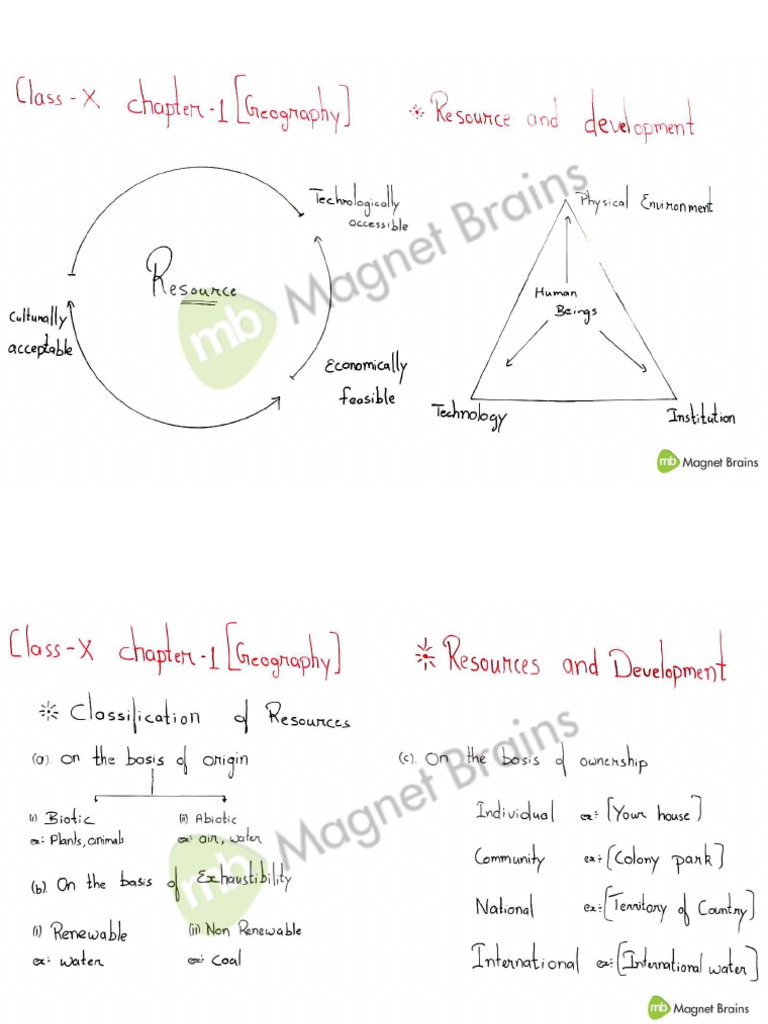 Class-X chapter-1 [Geography]
* Resource and development
Technologically
accessible
Resource
Culturally
acceptable
Economically
feasible
Physical Environment
Human
Beings
Technology
Institution
Magnet Brains
mb
mb Magnet Brains
Class-X chapter-1 [Geography]
* Resources and Development
* Classification of Resources
(a). on the basis of origin
(i) Biotic
ex:- Plants, animals
(ii) Abiotic
ex:- air, water
(b). On the basis of Exhaustibility
(i) Renewable
ex:- water
(ii) Non Renewable
ex:- coal
(c). On the basis of ownership
Individual ex:- [Your house]
Community ex:- [Colony park]
National ex:- [Territory of Country]
International ex:- [International water]
Magnet Brains
mb
mb Magnet Brains